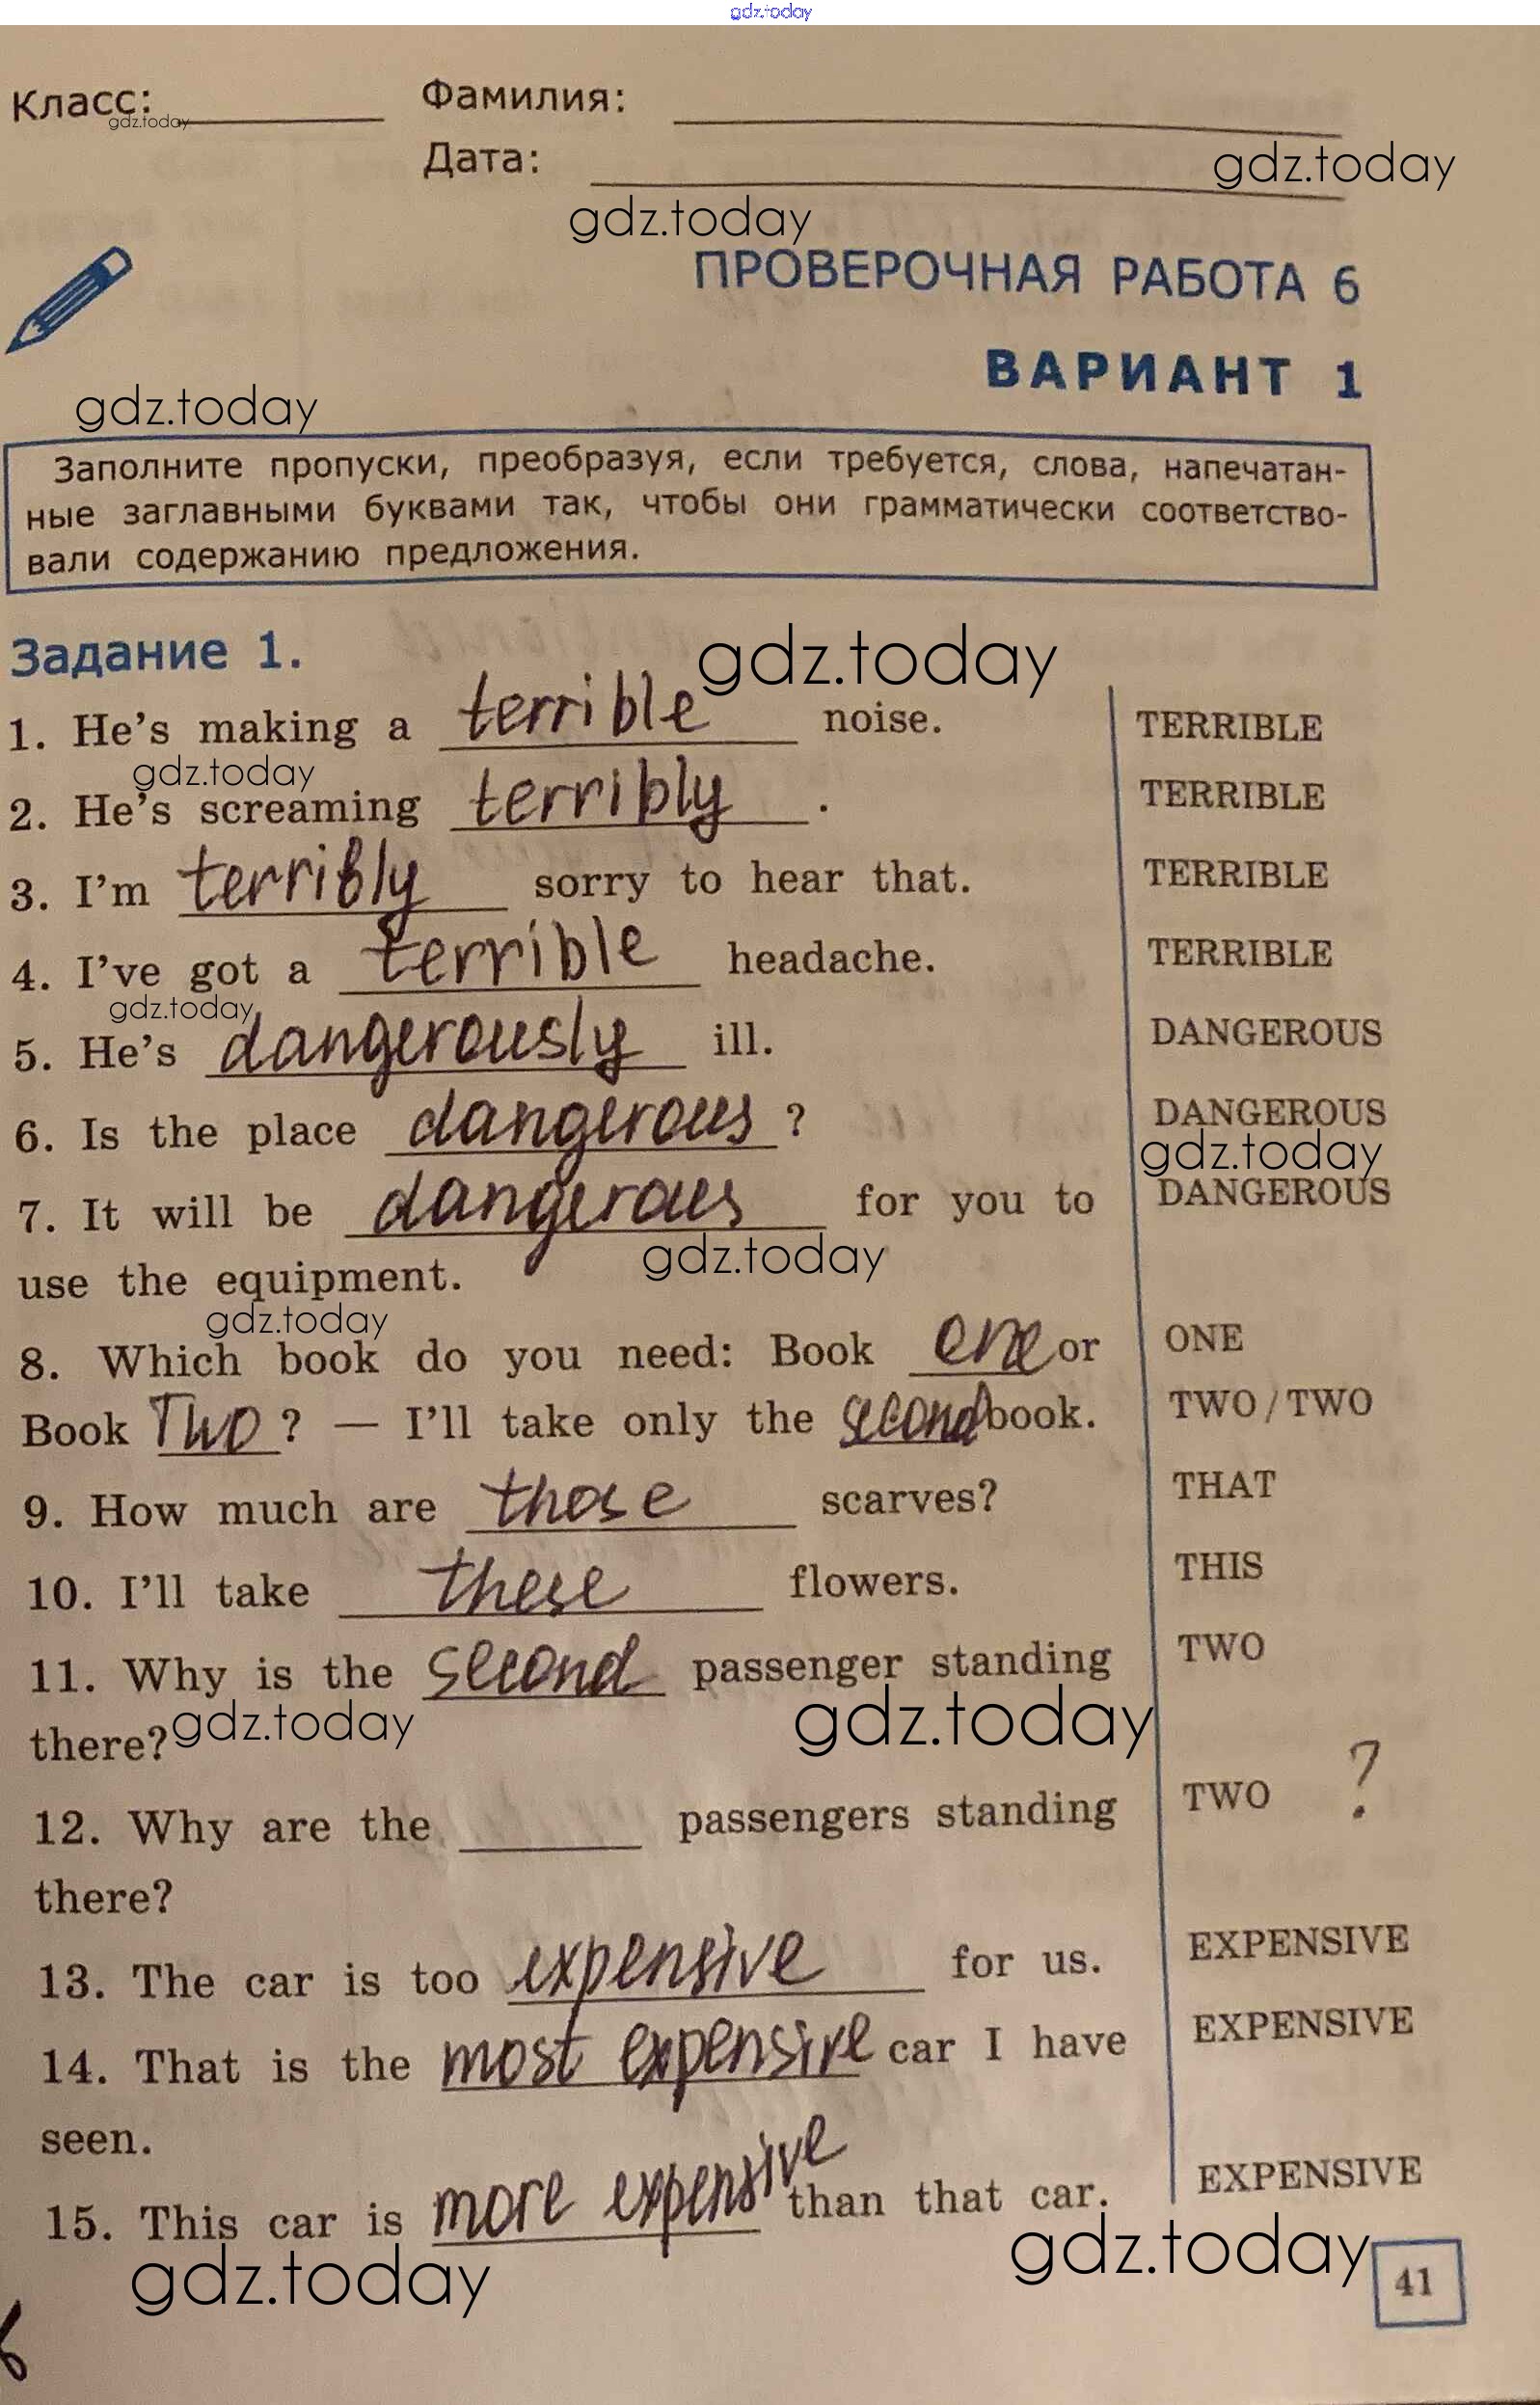 gdz.today
Класс: Фамилия:
gdz.today
Дата:
gdz.today
gdz.today
ПРОВЕРОЧНАЯ РАБОТА 6
ВАРИАНТ 1
gdz.today
Заполните пропуски, преобразуя, если требуется, слова, напечатан-
ные заглавными буквами так, чтобы они грамматически соответство-
вали содержанию предложения.
Задание 1.
gdz.today
1. He's making a terrible noise. TERRIBLE
gdz.today
2. He's screaming terribly. TERRIBLE
3. I'm terribly sorry to hear that. TERRIBLE
4. I've got a terrible headache. TERRIBLE
gdz.today
5. He's dangerously ill. DANGEROUS
6. Is the place dangerous? DANGEROUS
gdz.today
7. It will be dangerous for you to DANGEROUS
gdz.today
use the equipment.
gdz.today
8. Which book do you need: Book one or ONE
Book Two? — I'll take only the second book. TWO/TWO
9. How much are those scarves? THAT
10. I'll take these flowers. THIS
11. Why is the second passenger standing TWO
there?
gdz.today
gdz.today
12. Why are the passengers standing TWO ?
there?
13. The car is too expensive for us. EXPENSIVE
14. That is the most expensive car I have EXPENSIVE
seen.
15. This car is more expensive than that car. EXPENSIVE
gdz.today
gdz.today
41